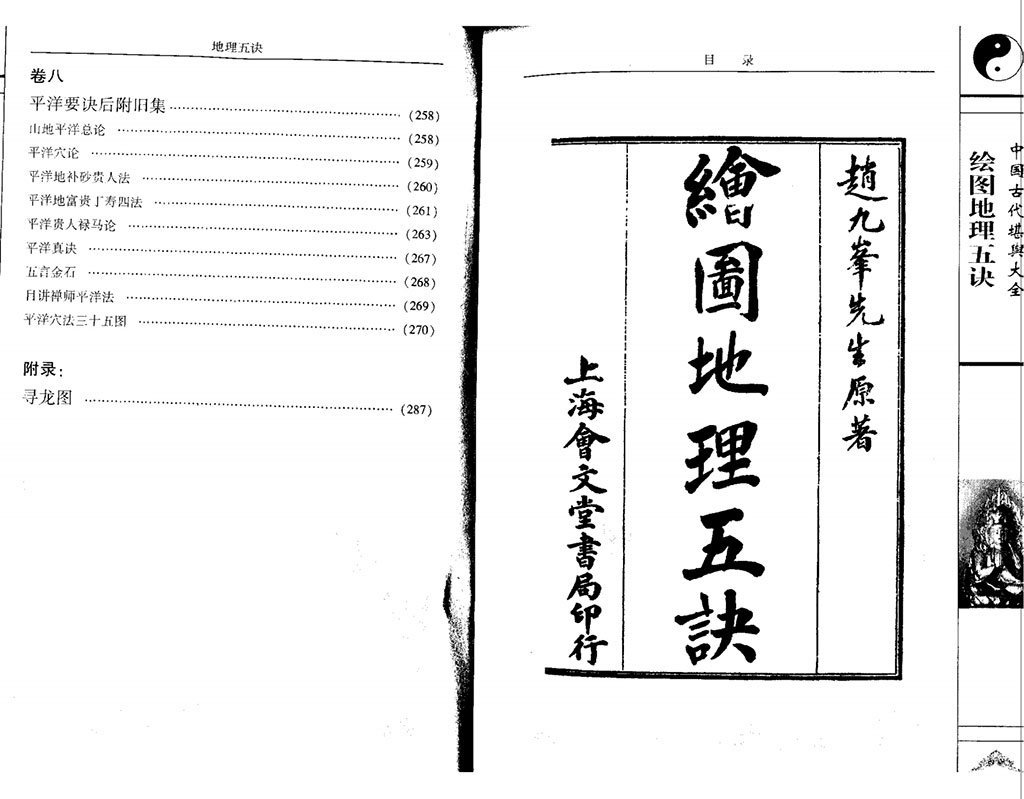 地理五诀
卷八
平洋要诀后附旧集 (258)
山地平洋总论 (258)
平洋穴论 (259)
平洋地补砂贵人法 (260)
平洋地富贵丁寿四法 (261)
平洋贵人禄马论 (263)
平洋真诀 (267)
五言金石 (268)
目讲禅师平洋法 (269)
平洋穴法三十五图 (270)
附录:
寻龙图 (287)
目 录
趙九峯先生原著
繪圖地理五訣
上海會文堂書局印行
中国古代堪舆大全
绘图地理五诀